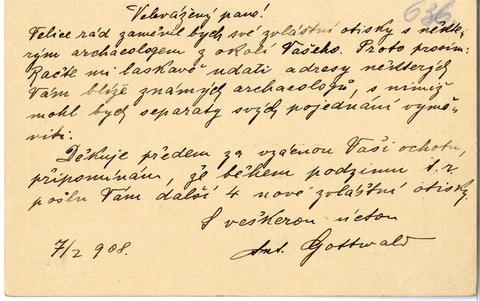 636
Velevážený pane!
Velice rád zaměnil bych své zvláštní otisky s někte-
rým archaeologem z okolí Vašeho. Proto prosím:
Račte mi laskavě udati adresy některých
Vám blíže známých archaeologů, s nimiž
mohl bych separaty svých pojednání vymě-
niti.
Děkuje předem za vzácnou Vaši ochotu,
připomínám, že během podzimu t. r.
pošlu Vám další 4 nové zvláštní otisky.
S veškerou úctou
7/2 908. Ant. Gottwald